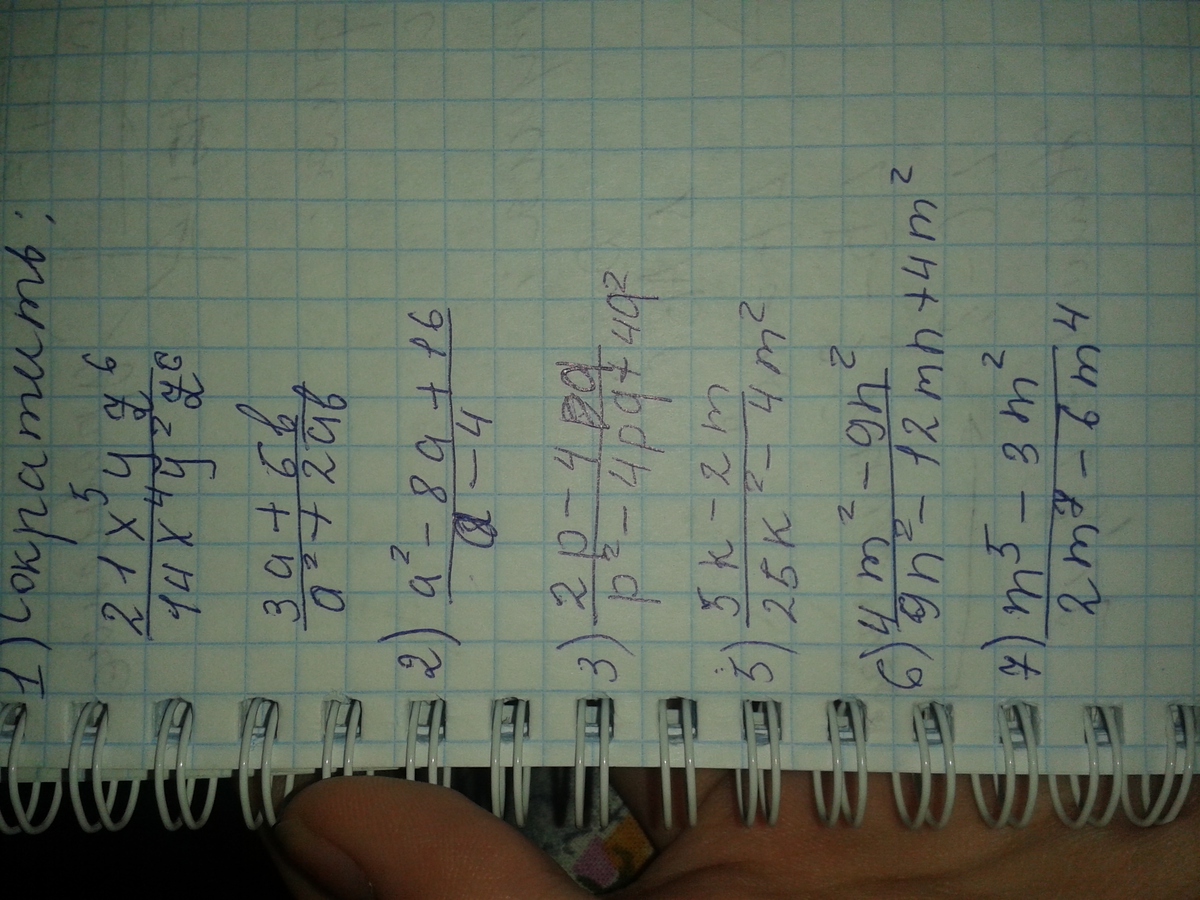 1) Сократить:
21x⁵yz⁶
14x⁴y²z⁶
3a+6b
a²+2ab
2) a²-8a+16
a-4
3) 2p-4q
p²-4pq+4q²
5) 5k-2m
25k²-4m²
6) 4m²-9n²
9n²-12mn+4m²
7) m⁵-3m²
2m⁷-6m⁴